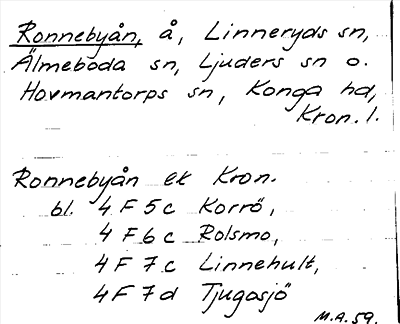 Ronnebyån, å, Linneryds sn,
Älmeboda sn, Ljuders sn o.
Hovmantorps sn, Konga hd,
Kron. l.
Ronnebyån ek Kron.
bl. 4 F 5 c Korrö,
4 F 6 c Rolsmo,
4 F 7 c Linnehult,
4 F 7 d Tjugosjö
M.A. 59.